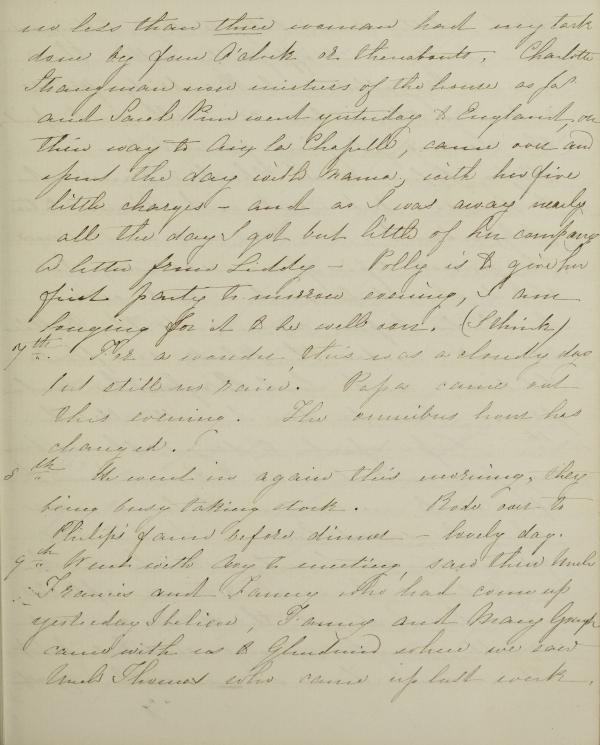 no less than three woman had my task
done by four O'clock or thereabouts. Charlotte
Strangman now mistress of the house as Jas
and Sarah Pim went yesterday to England, on
their way to Aix la Chapelle, came over and
spent the day with mama, with her five
little charges – and as I was away nearly
all the day I got but little of her company
A letter from Liddy – Polly is to give her
first party to morrow evening, I am
longing for it to be well over. (I think)
7th. For a wonder, this was a cloudy day
but still no rain. Papa came out
this evening. The omnibus hour has
changed.
8th He went in again this morning, they
being busy taking stock. Rode over to
Philip's farm before dinner – lovely day.
9th Went with to meeting, saw there Uncle
Francis and Fanny who had come up
yesterday I believe, Fanny and Mary
came with us to Glendruid where we saw
Uncle Thomas who came up last week.